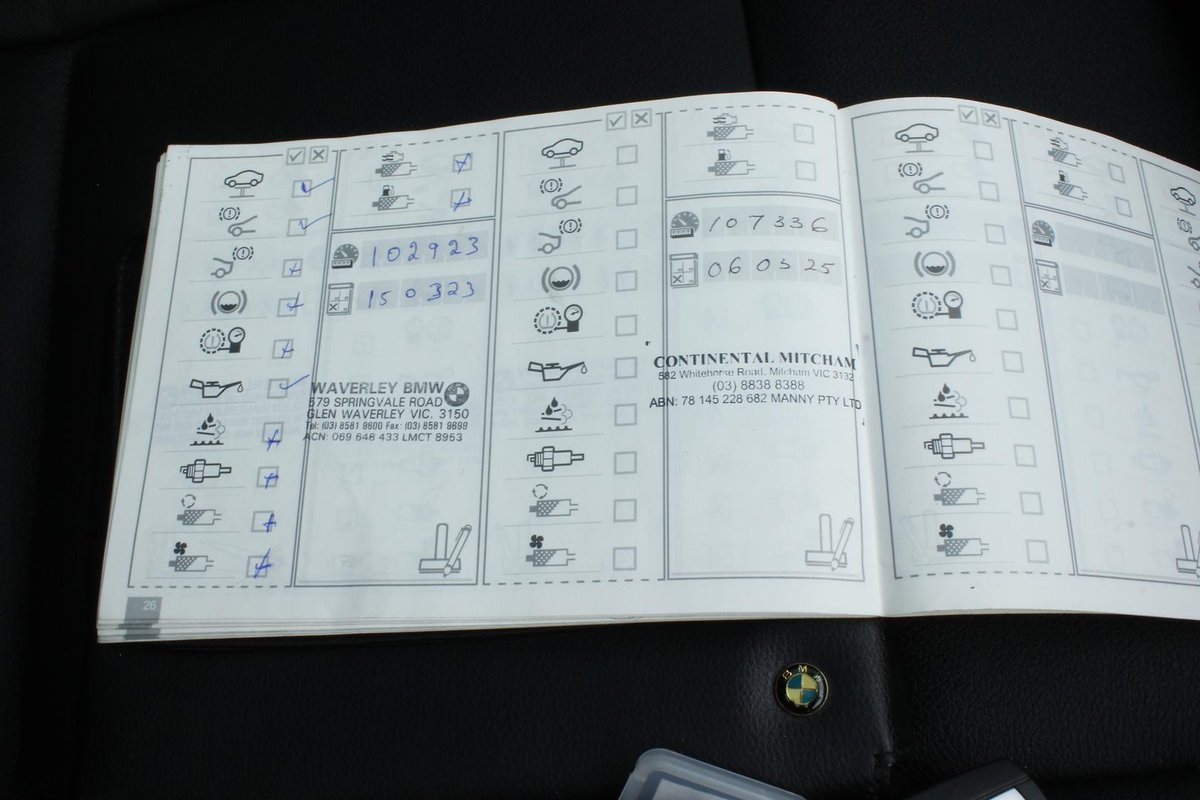 102923
150323
WAVERLEY BMW
579 SPRINGVALE ROAD
GLEN WAVERLEY VIC. 3150
Tel: (03) 8581 9600 Fax: (03) 8581 9699
ACN: 069 648 433 LMCT 8953
26
107336
060325
CONTINENTAL MITCHAM
582 Whitehorse Road, Mitcham VIC 3132
(03) 8838 8388
ABN: 78 145 228 682 MANNY PTY LTD
BMW